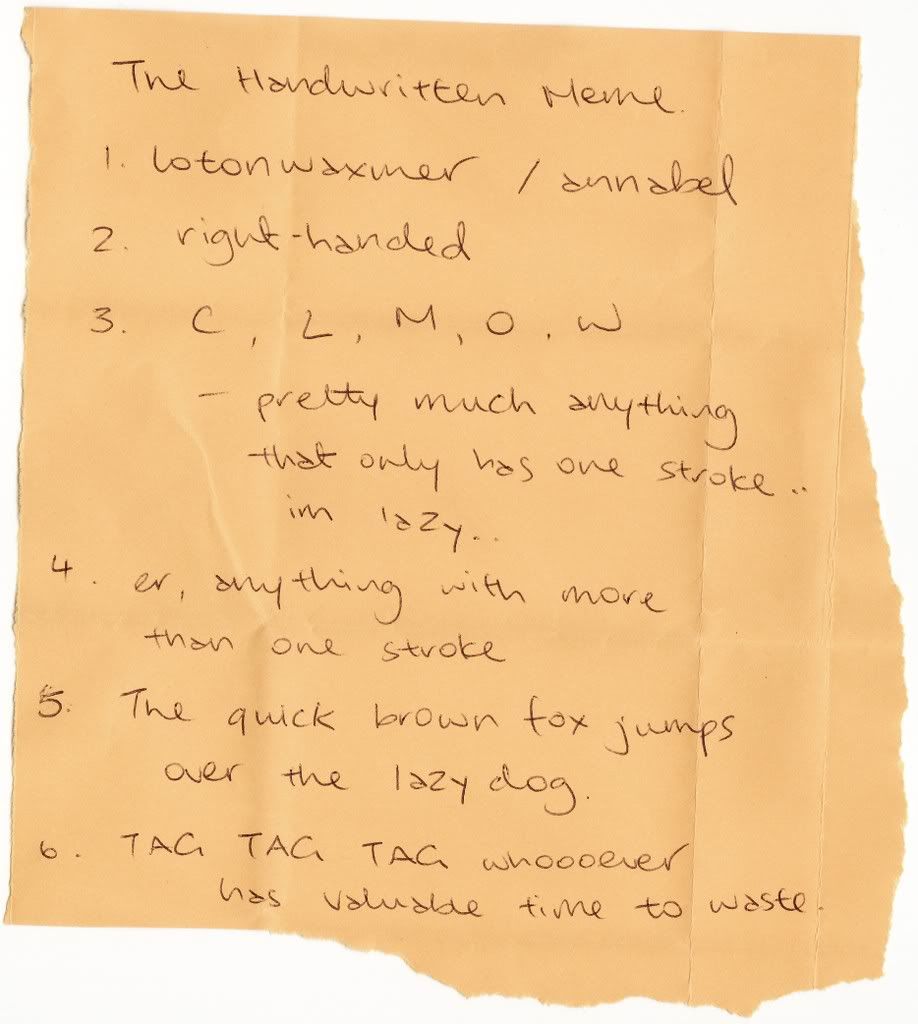 The Handwritten Meme.
1. lotonwaxmer / annabel
2. right-handed
3. C, L, M, O, W
- pretty much anything
that only has one stroke..
im lazy..
4. er, anything with more
than one stroke
5. The quick brown fox jumps
over the lazy dog.
6. TAG TAG TAG whoooever
has valuable time to waste.